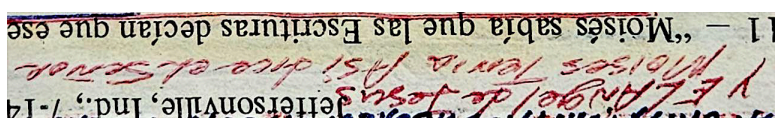 Jeffersonville, Ind., 7-14
Y EL Angel de Jesus
Moises Tenia Asi dice el Señor
11 — “Moisés sabía que las Escrituras decían que ese